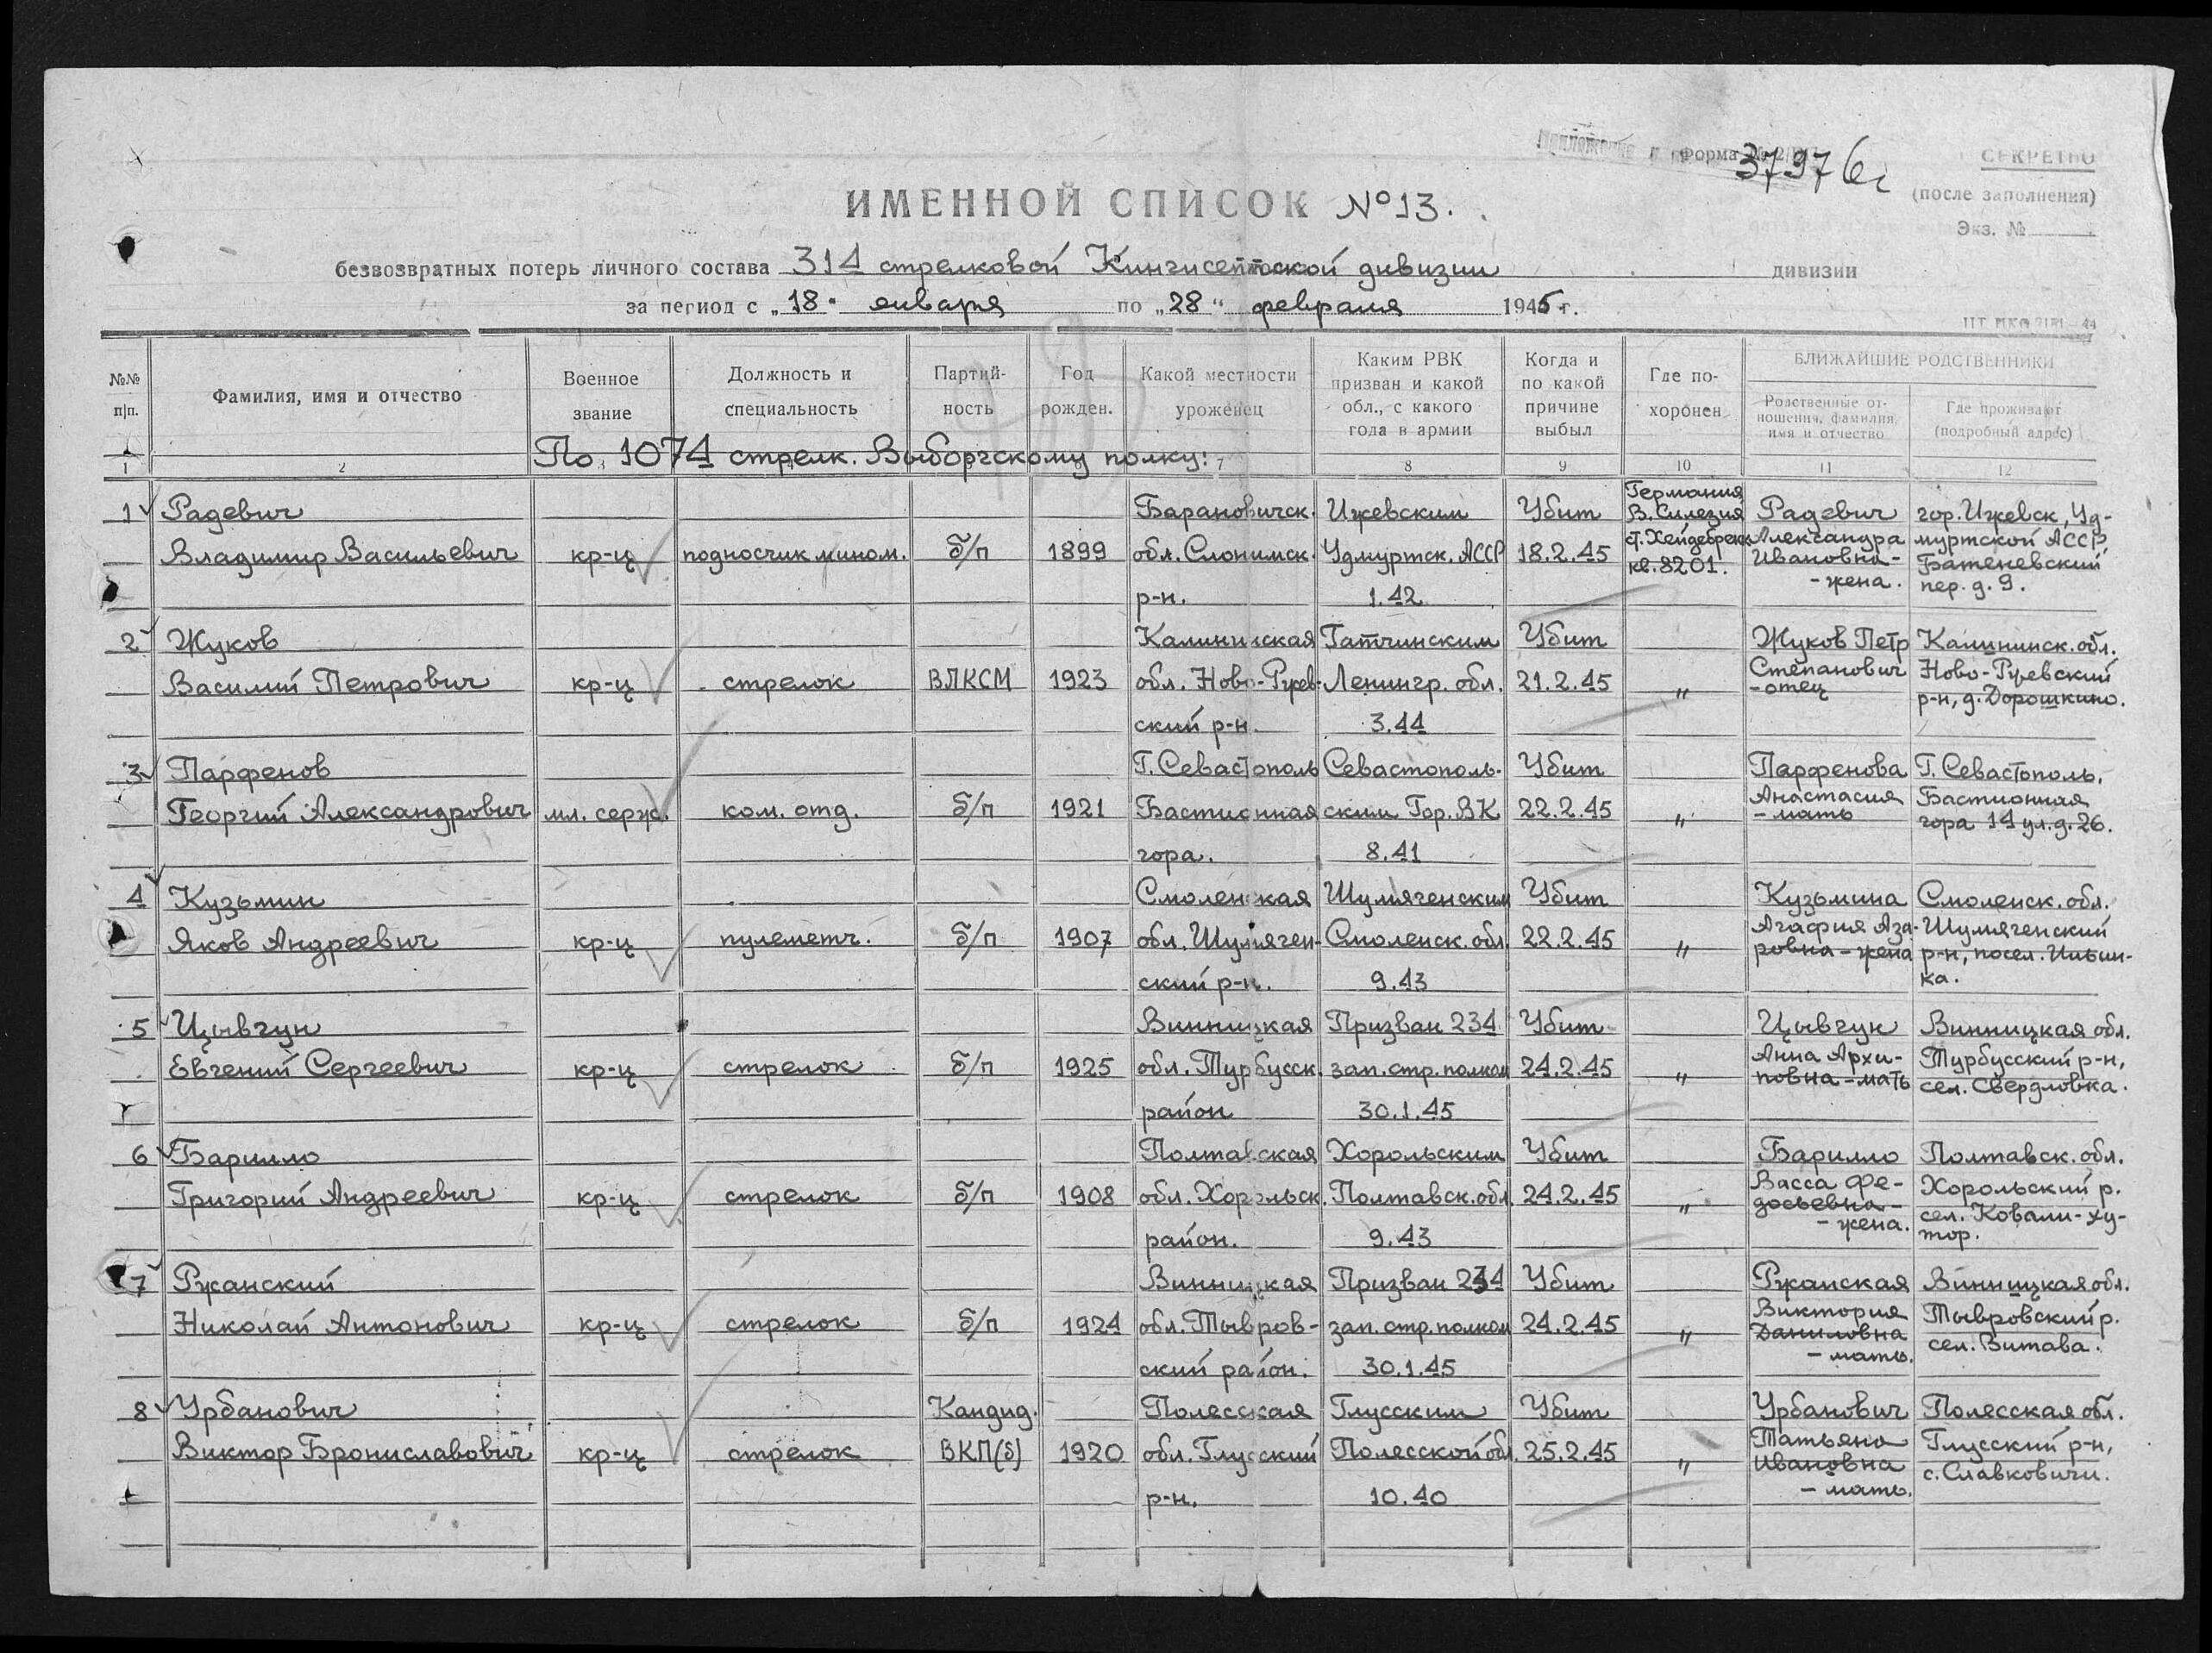 Форма № 2
37976с
СЕКРЕТНО
(после заполнения)
Экз. №
ИМЕННОЙ СПИСОК №13.
безвозвратных потерь личного состава 314 стрелковой Кингисеппской дивизии дивизии
за период с „18" января по „28" февраля 1945 г.
№№ п|п.
Фамилия, имя и отчество
Военное звание
Должность и специальность
Партий-ность
Год рожден.
Какой местности уроженец
Каким РВК призван и какой обл., с какого года в армии
Когда и по какой причине выбыл
Где по-хоронен
БЛИЖАЙШИЕ РОДСТВЕННИКИ
Родственные от-ношения, фамилия, имя и отчество
Где проживают (подробный адрес)
По 1074 стрелк. Выборгскому полку:
1 2 3 7 8 9 10 11 12
1 Радевич Барановичск. Ижевским Убит Германия В. Силезия Радевич гор. Ижевск, Уд-
Владимир Васильевич кр-ц подносчик мином. б/п 1899 обл. Слонимск. Удмуртск. АССР 18.2.45 ст. Хейдебрекк Александра муртской АССР
р-н. 1.42 кв. 8201. Ивановна - Батеневский
- жена. пер. д. 9.
2 Жуков Калининская Гатчинским Убит Жуков Петр Калининск. обл.
Василий Петрович кр-ц стрелок ВЛКСМ 1923 обл. Ново-Ржев- Ленингр. обл. 21.2.45 " Степанович Ново-Ржевский
ский р-н. 3.44 - отец р-н, д. Дорошкино.
3 Парфенов Г. Севастополь Севастополь- Убит Парфенова Г. Севастополь.
Георгий Александрович мл. серж. ком. отд. б/п 1921 Бастионная ским Гор. ВК 22.2.45 " Анастасия Бастионная
гора. 8.41 - мать гора 14 ул. д. 26.
4 Кузьмин Смоленская Шумяченским Убит Кузьмина Смоленск. обл.
Яков Андреевич кр-ц пулеметч. б/п 1907 обл. Шумячен- Смоленск. обл. 22.2.45 " Агафия Аза- Шумяченский
ский р-н. 9.43 ровна - жена р-н, посел. Ильин-
ка.
5 Цывчун Винницкая Призван 234 Убит Цывчун Винницкая обл.
Евгений Сергеевич кр-ц стрелок б/п 1925 обл. Турбусск. зап. стр. полком 24.2.45 " Анна Архи- Турбусский р-н,
район 30.1.45 повна - мать сел. Свердловка.
6 Барилло Полтавская Хорольским Убит Барилло Полтавск. обл.
Григорий Андреевич кр-ц стрелок б/п 1908 обл. Хорольск. Полтавск. обл. 24.2.45 " Васса Фе- Хорольский р.
район. 9.43 досьевна - сел. Ковали-ху-
- жена. тор.
7 Ржанский Винницкая Призван 234 Убит Ржанская Винницкая обл.
Николай Антонович кр-ц стрелок б/п 1924 обл. Тывров- зап. стр. полком 24.2.45 " Виктория Тывровский р.
ский район. 30.1.45 Даниловна сел. Витава.
- мать.
8 Урбанович Кандид. Полесская Глусским Убит Урбанович Полесская обл.
Виктор Брониславович кр-ц стрелок ВКП(б) 1920 обл. Глусский Полесской обл. 25.2.45 " Татьяна Глусский р-н,
р-н. 10.40 Ивановна с. Славковичи.
- мать.